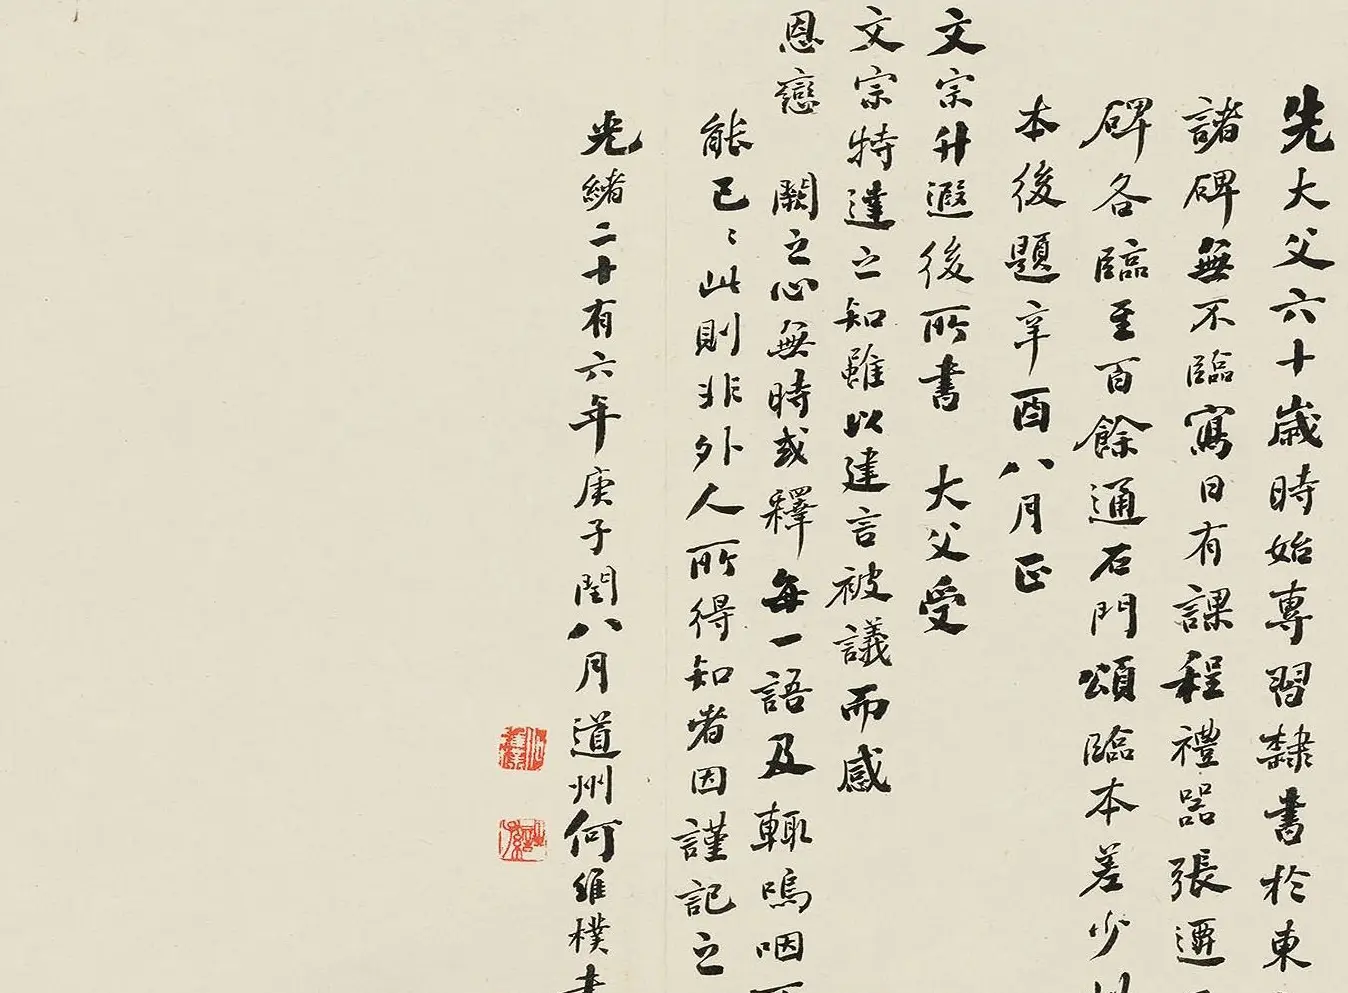 先大父六十歲時始專習隸書於東
諸碑無不臨寫日有課程禮器張遷
碑各臨至百餘通石門頌臨本差少
本後題辛酉八月正
文宗升遐後所書　大父受
文宗特達之知雖以建言被議而感
恩戀　闕之心無時或釋每一語及輒嗚咽不
能已〻此則非外人所得知者因謹記之
光緒二十有六年庚子閏八月道州何維樸書